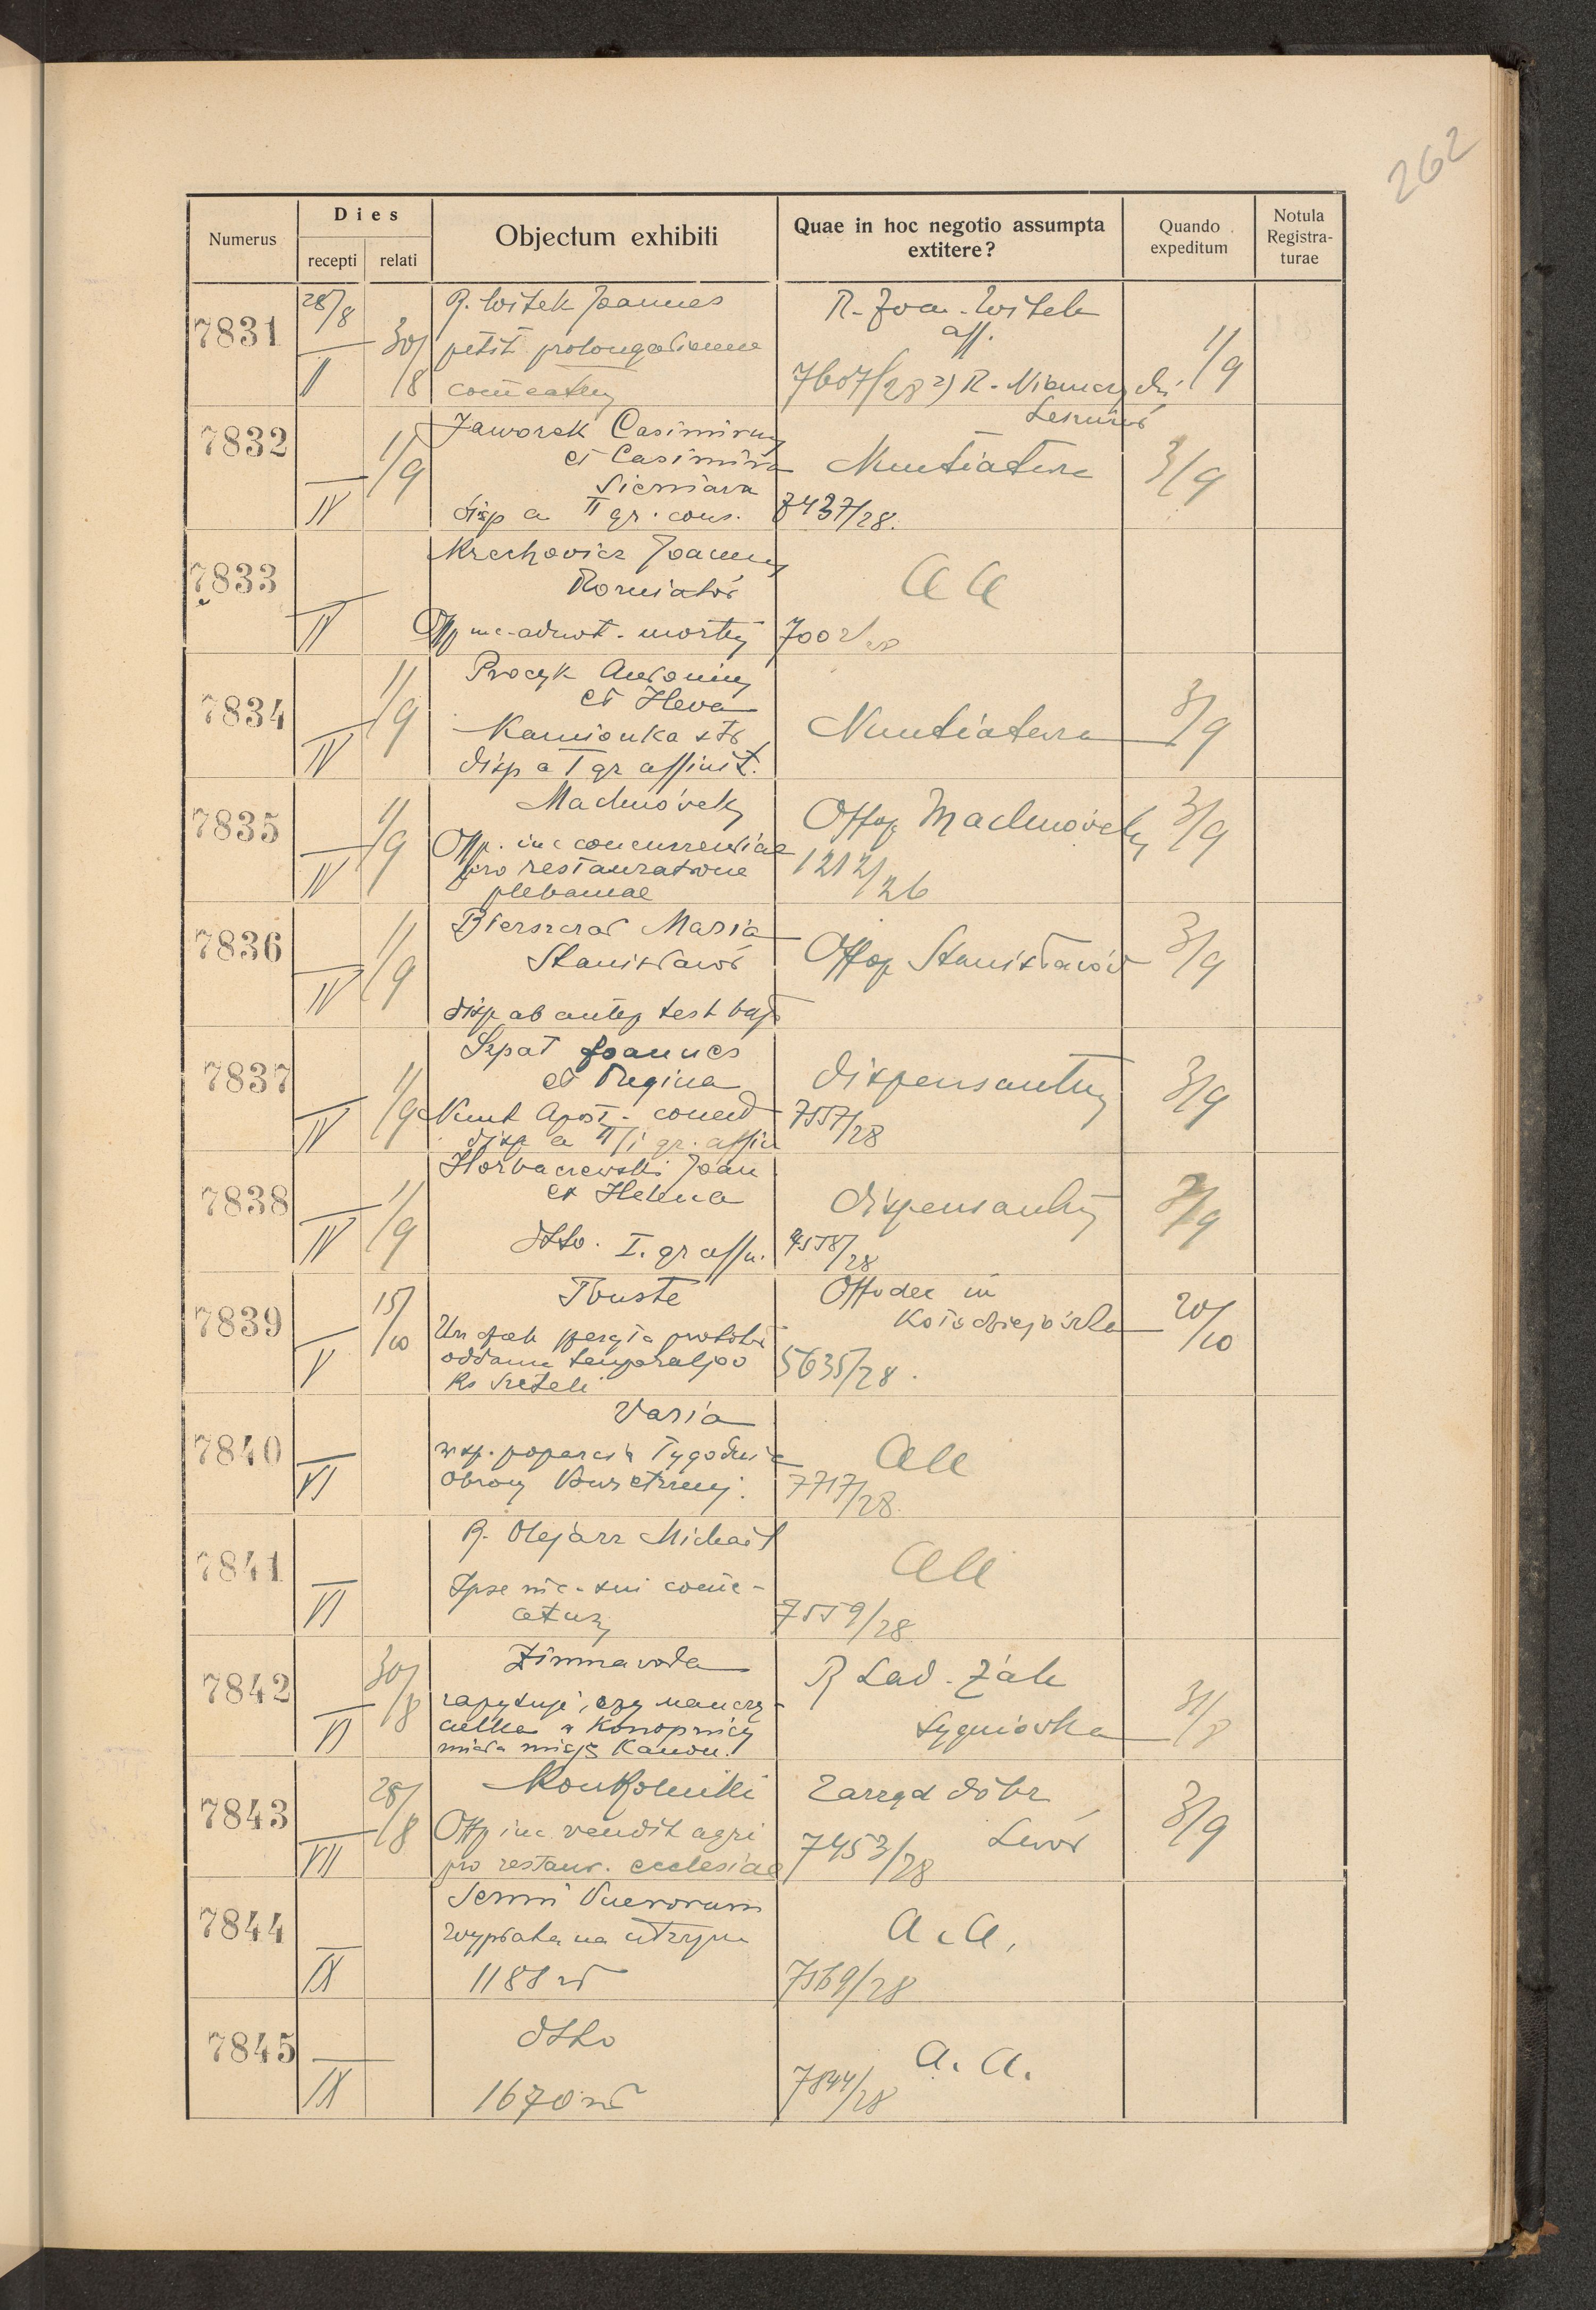 262
Numerus
Dies
recepti
relati
Objectum exhibiti
Quae in hoc negotio assumpta extitere?
Quando expeditum
Notula Registra-
turae
7831
28/8
II
30/8
R. Witek Joannes
petit prolongationem
R. Joa. Witek
aff.
7607/28 2) R.
1/9
7832
IV
1/9
Jaworek Casimirus
et Casimira
Sieniawa
disp a II gr. cons.
Nuntiatura
7437/28.
3/9
7833
IV
Krechowicz Joannes
Rożniatów
Off inc. adnot. mortis
aa
7834
IV
1/9
Procyk Antonius
et Hewa
Kamionka str
disp a I gr affinit.
Nuntiatura
3/9
7835
IV
1/9
Off. inc concurrentiae
pro restauratione
plebaniae
1212/26
3/9
7836
IV
1/9
Maria
Stanisławów
disp ab
Off Stanisławów
3/9
7837
IV
1/9
Szpat Joannes
et Regina
Nunt Apost.
disp a II/I gr. affin
dispensantur
7557/28
3/9
7838
IV
1/9
Horbaczewski Joan
et Helena
dtto. I. gr affin.
dispensantur
7558/28
3/9
7839
V
15/10
Touste
oddania temporaljów
Off dec in
Kołodziejówka
5635/28.
20/10
7840
VI
Varia
w sp. poparcia Tygodnia
Obrony Powietrznej.
aa
7717/28.
7841
VI
R. Olejarz Michael
aa
7559/28
7842
VI
30/8
Zimnawoda
zapytuje, czy nauczy-
cielka w Konopnicy
miała misję kanon.
R Lad. Żak
Sygniówka
31/8
7843
VII
28/8
Konkolniki
Off inc vendit agri
pro restaur. ecclesiae
Zarząd dóbr
Lwów
7453/28
3/9
7844
IX
Semin Puerorum
wypłata na utrzym
1188 zł
a.a.
7569/28
7845
IX
dtto
1670 zł
a. a.
7844/28